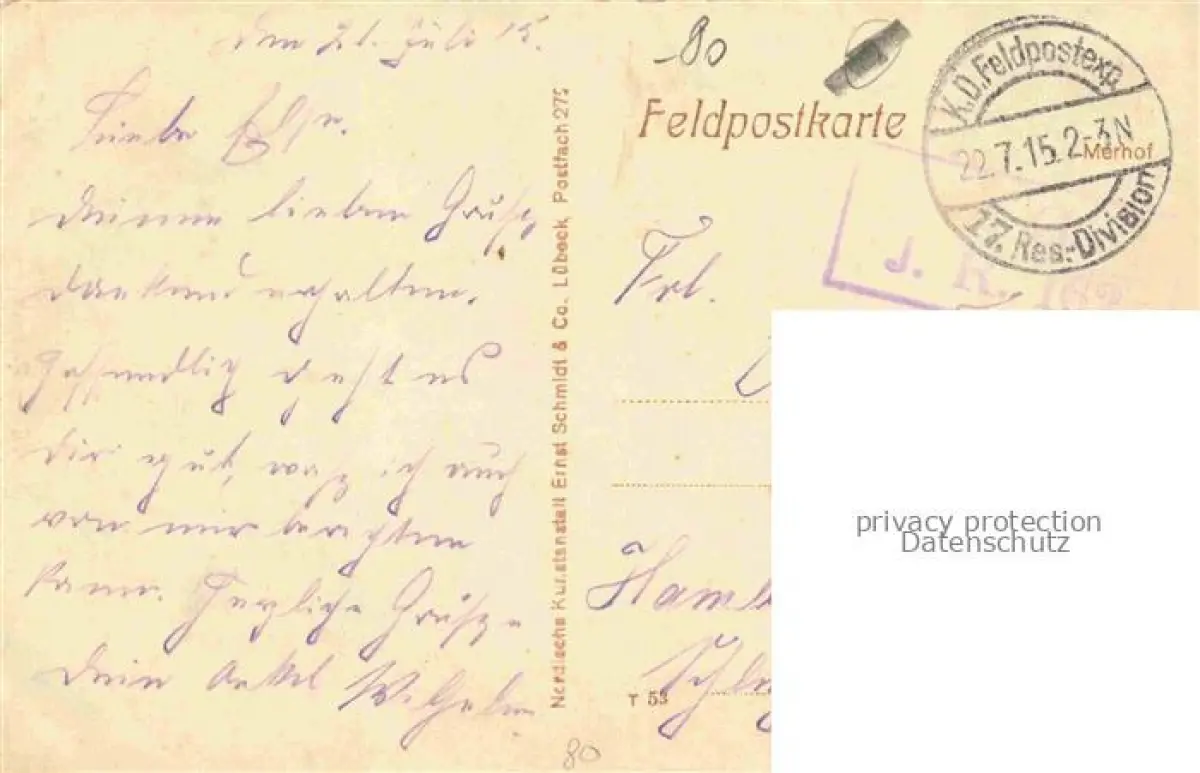 den 21. Juli 15.
Liebe Else.
Deinen lieben Gruß
dankend erhalten.
Hoffendlich geht es
dir gut, was ich auch
von mir berichten
kann. Herzliche Grüße
Dein Onkel Wilhelm
Nordische Kunstanstalt Ernst Schmidt & Co. Lübeck, Postfach 275
80
Feldpostkarte
K.D. Feldpostexp.
22.7.15. 2-3N
17. Res.-Division
Merhof
J. R. 162
Frl.
T 53
80
privacy protection
Datenschutz